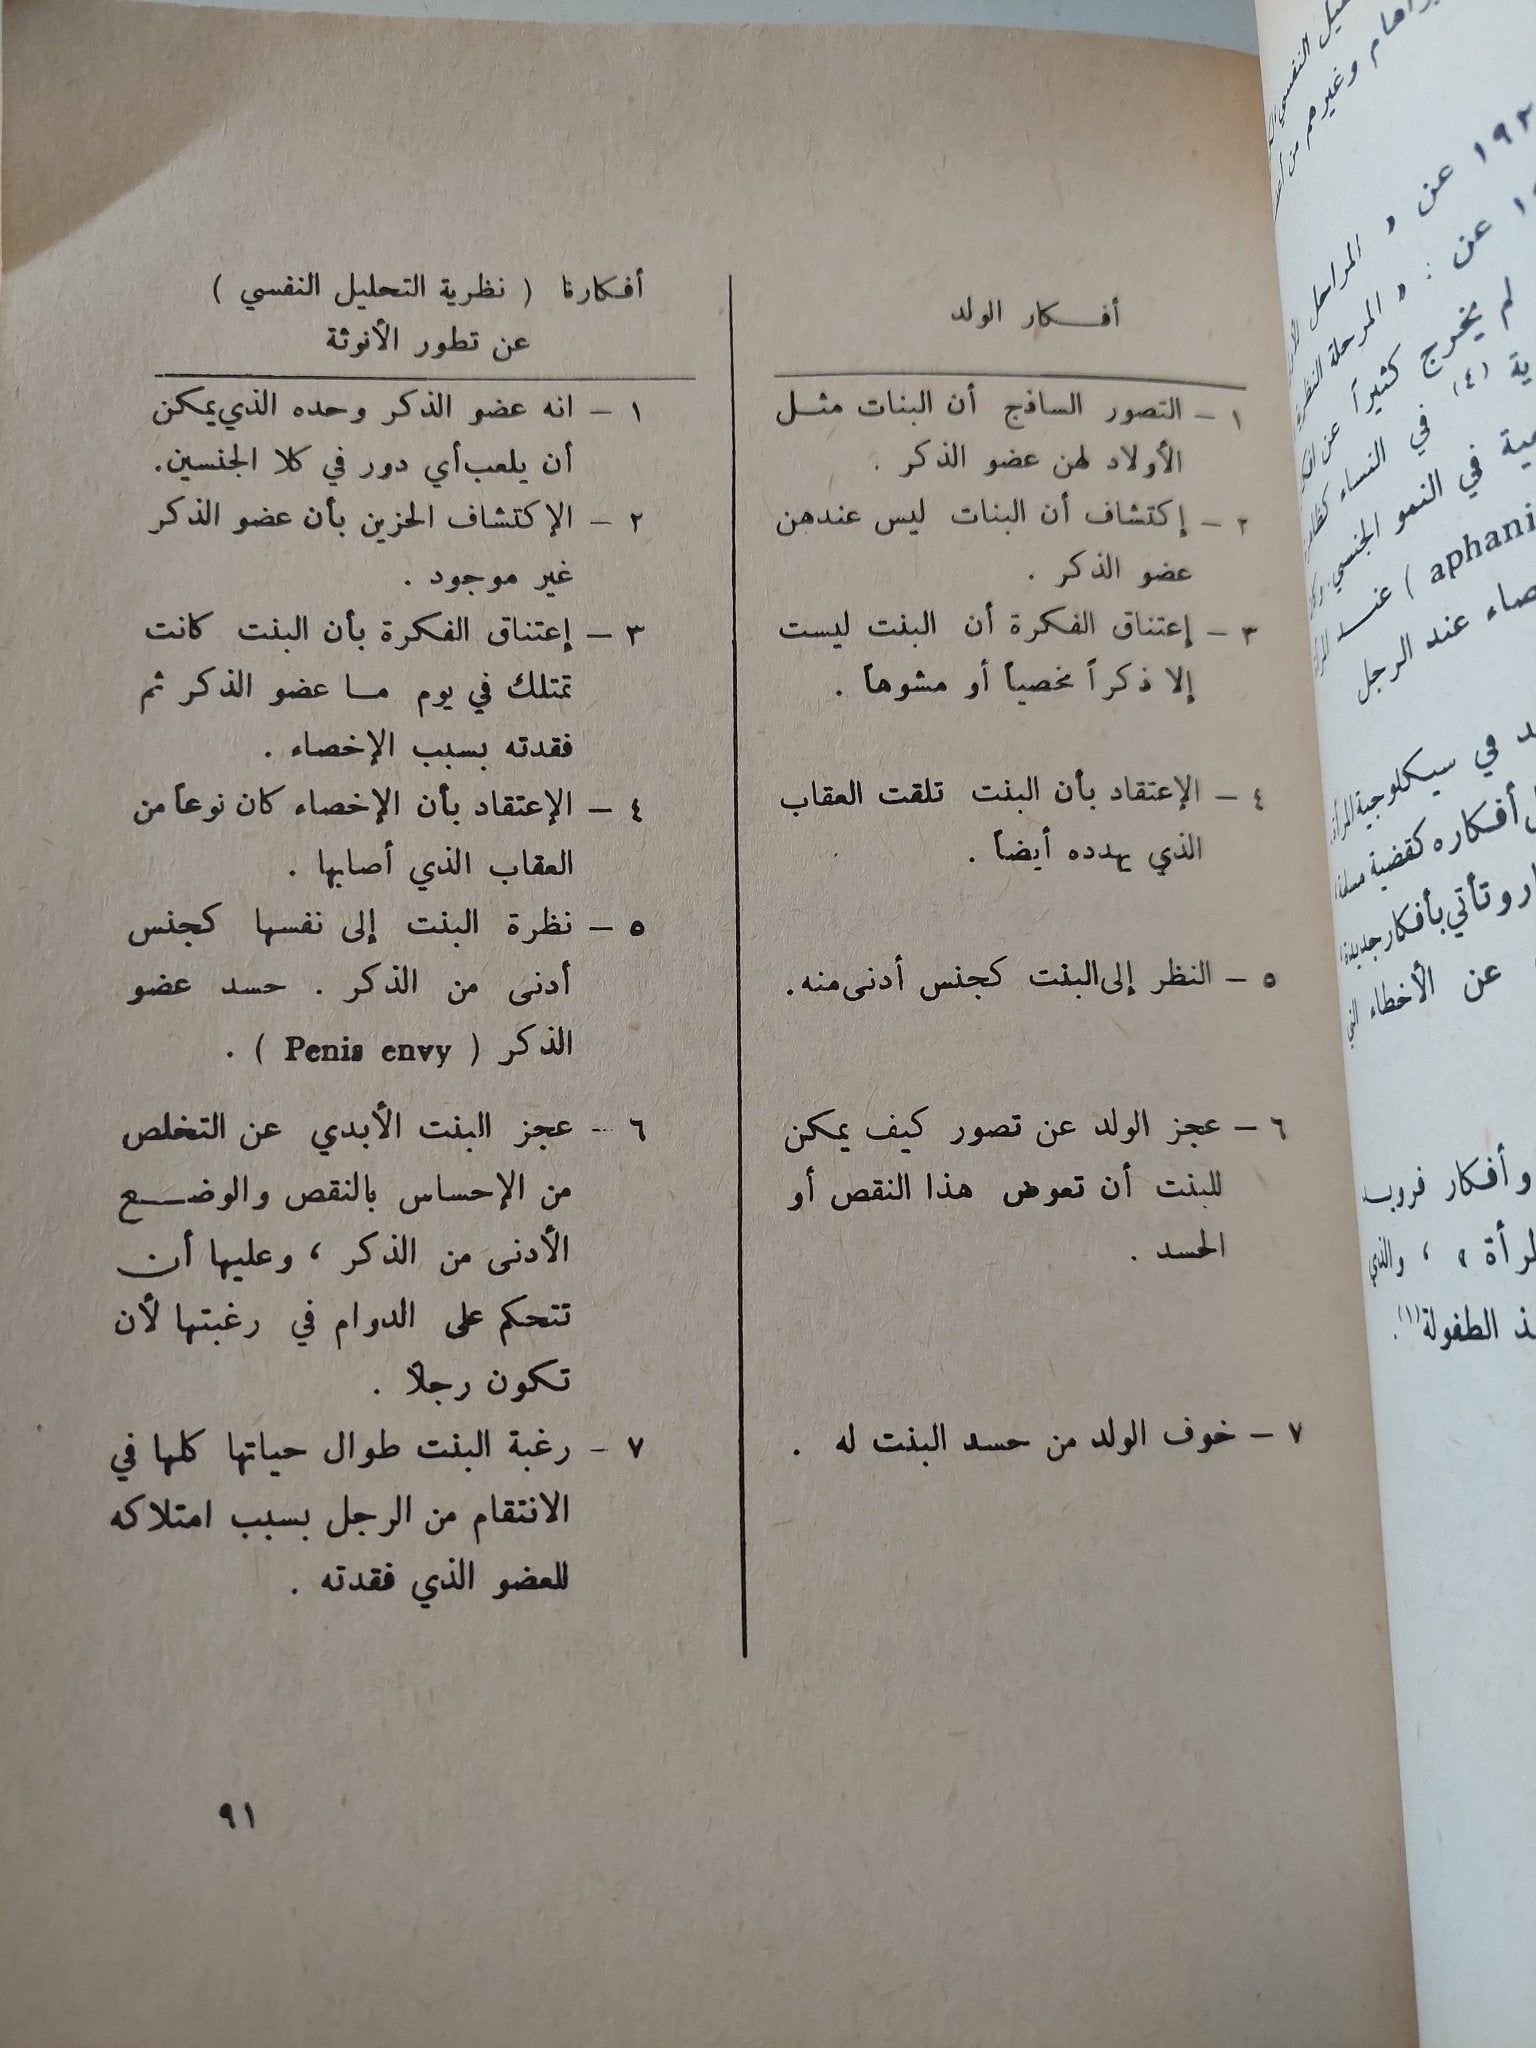 أفكار الولد
١ – التصور الساذج أن البنات مثل
الأولاد لهن عضو الذكر .
٢ – إكتشاف أن البنات ليس عندهن
عضو الذكر .
٣ – إعتناق الفكرة أن البنت ليست
إلا ذكراً مخصياً أو مشوهاً .
٤ – الإعتقاد بأن البنت تلقت العقاب
الذي يهدده أيضاً .
٥ – النظر إلى البنت كجنس أدنى منه .
٦ – عجز الولد عن تصور كيف يمكن
للبنت أن تعوض هذا النقص أو
الحسد .
٧ – خوف الولد من حسد البنت له .
أفكارنا ( نظرية التحليل النفسي )
عن تطور الأنوثة
١ – انه عضو الذكر وحده الذي يمكن
أن يلعب أي دور في كلا الجنسين .
٢ – الإكتشاف الحزين بأن عضو الذكر
غير موجود .
٣ – إعتناق الفكرة بأن البنت كانت
تمتلك في يوم ما عضو الذكر ثم
فقدته بسبب الإخصاء .
٤ – الإعتقاد بأن الإخصاء كان نوعاً من
العقاب الذي أصابها .
٥ – نظرة البنت إلى نفسها كجنس
أدنى من الذكر . حسد عضو
الذكر ( Penis envy ) .
٦ – عجز البنت الأبدي عن التخلص
من الإحساس بالنقص والوضع
الأدنى من الذكر ، وعليها أن
تتحكم على الدوام في رغبتها لأن
تكون رجلاً .
٧ – رغبة البنت طوال حياتها كلها في
الانتقام من الرجل بسبب امتلاكه
للعضو الذي فقدته .
٩١
وغيرهم من
عن « المراحل
عن : « المرحلة
لم يخرج كثيراً عن
(٤) في النساء
في النمو الجنسي
aphani ) عند
عند الرجل
في سيكلوجية المرأة
أفكاره كقضية
وتأتي بأفكار جديدة
عن الأخطاء التي
وأفكار فرويد
، والذي
الطفولة(١) .